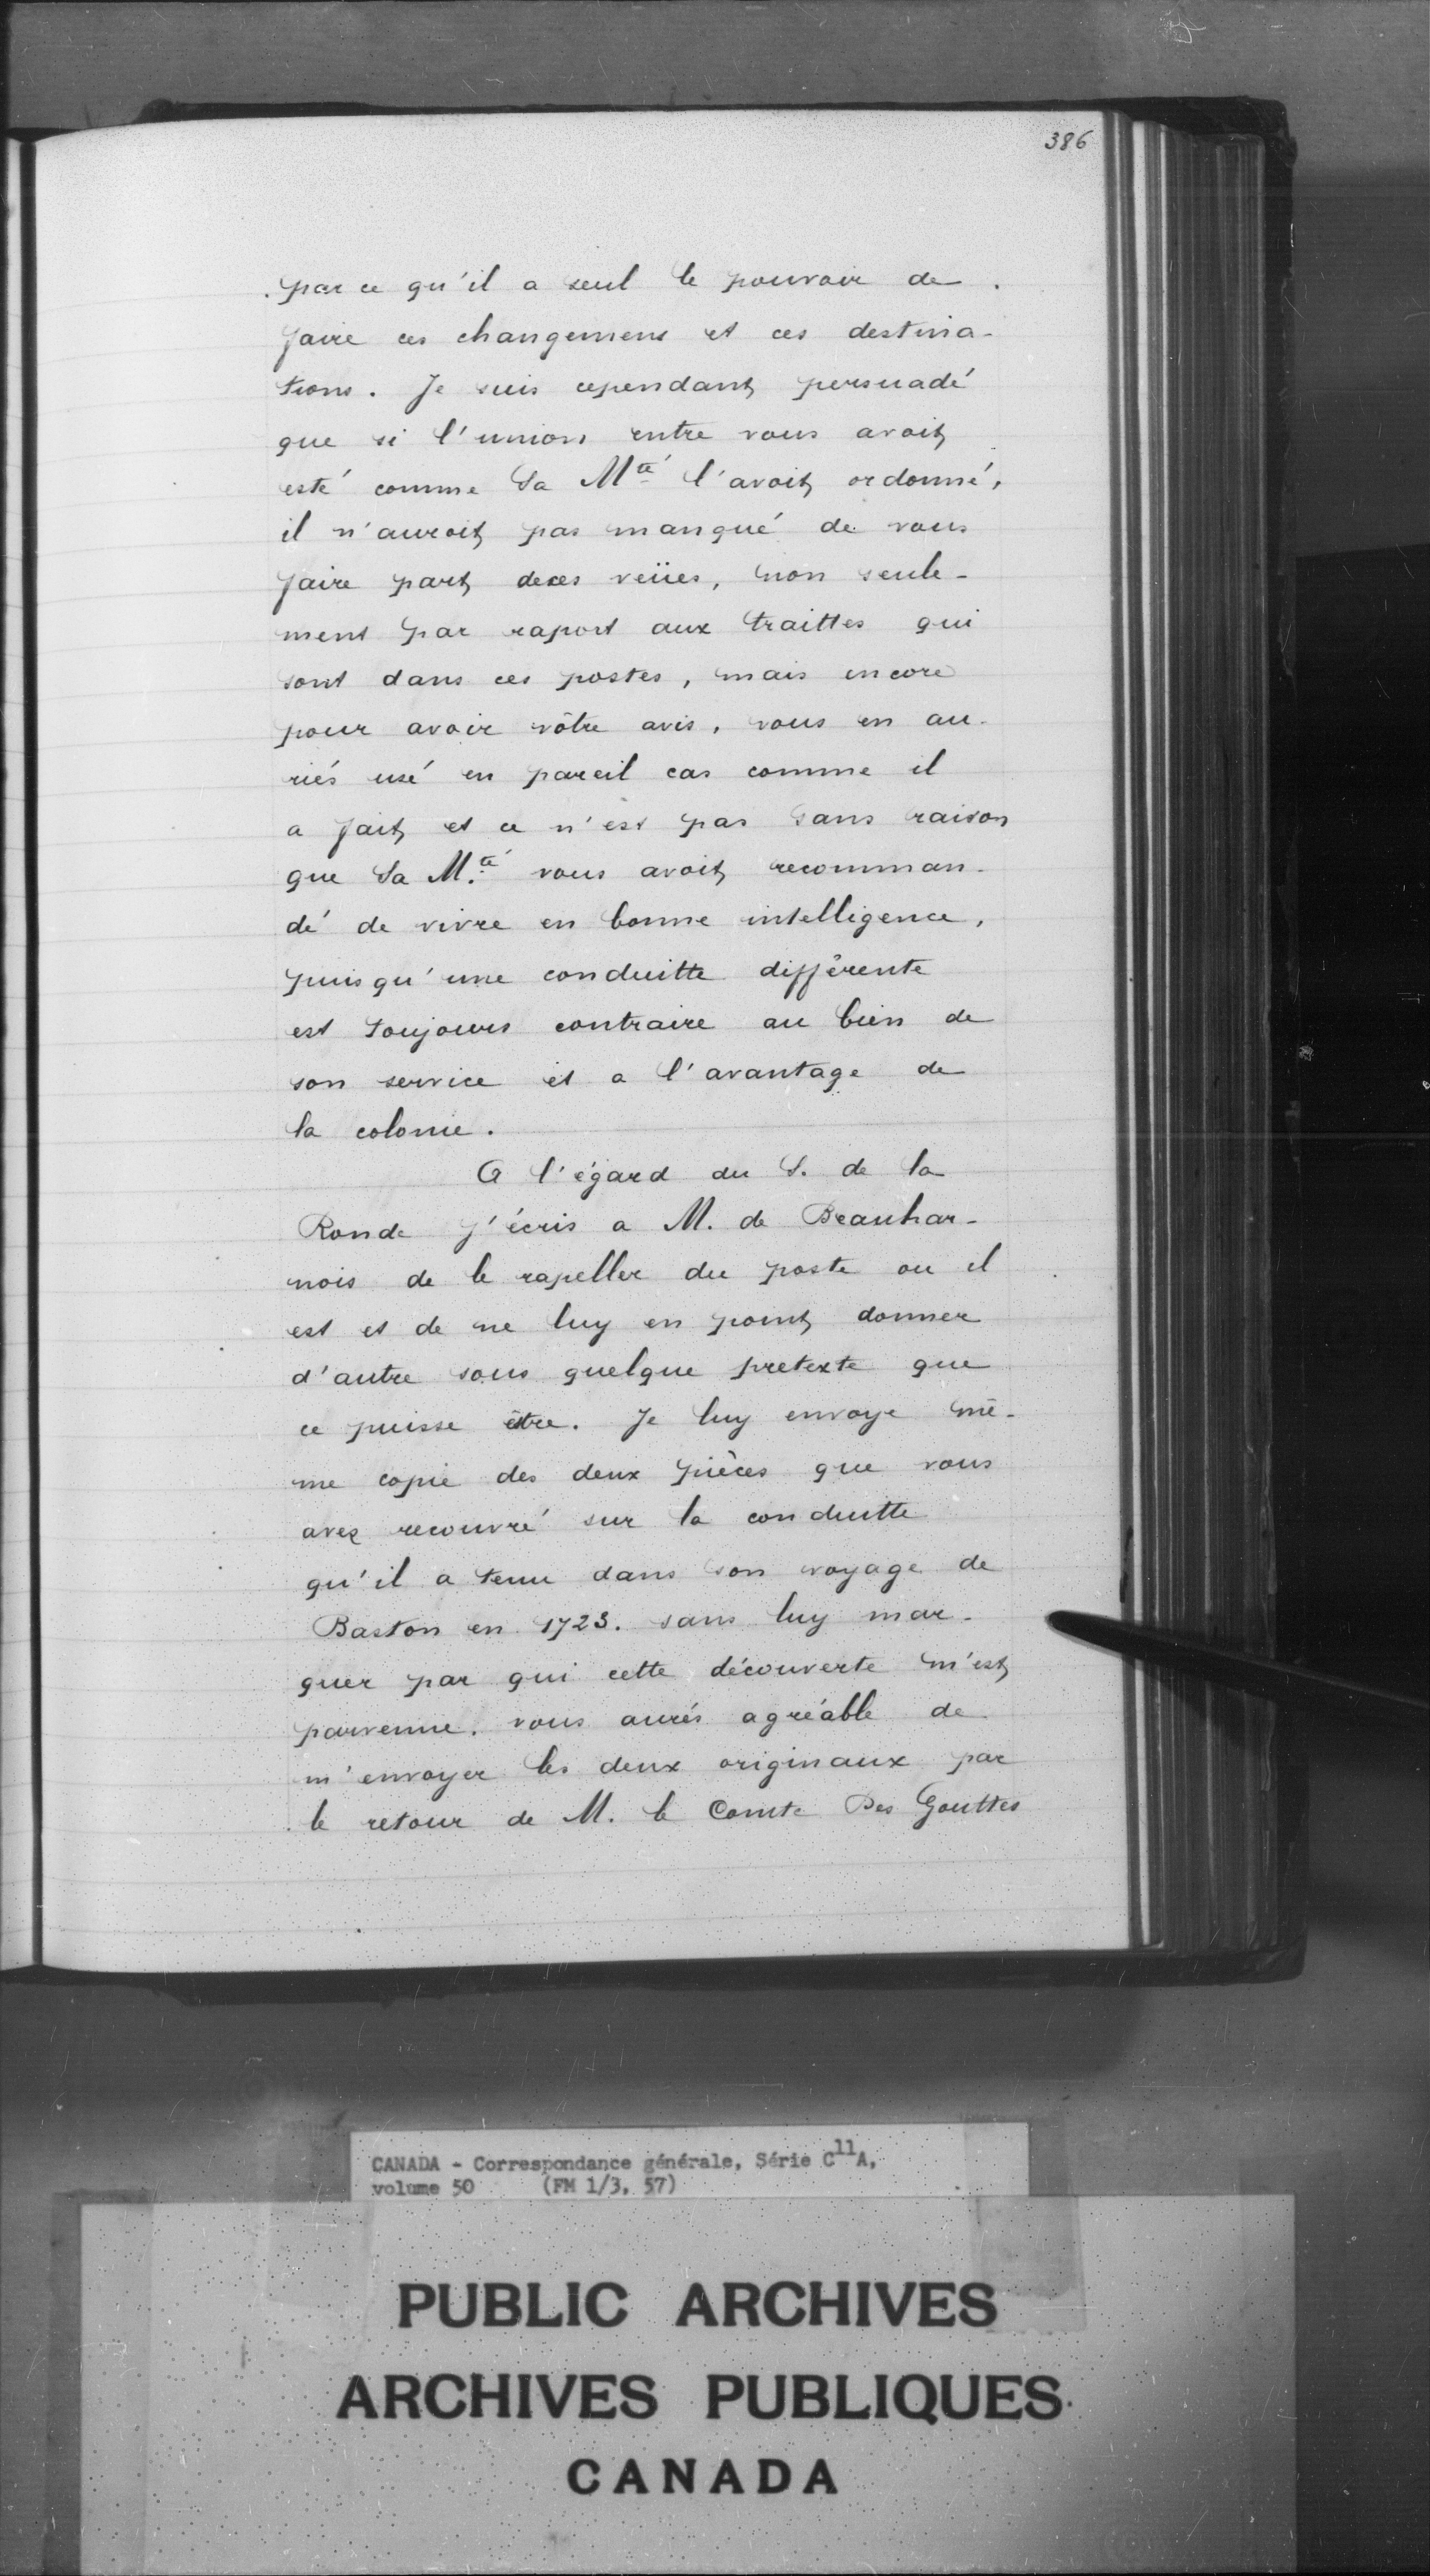 386
par ce qu'il a seul le pouvoir de
faire ces changemens et ces destina-
tions. Je suis cependant persuadé
que si l'union entre vous avoit
esté comme Sa Mté l'avoit ordonné,
il n'auroit pas manqué de vous
faire part de ces veües, non seule-
ment par raport aux traittes qui
sont dans ces postes, mais encore
pour avoir vôtre avis, vous en au-
riés usé en pareil cas comme il
a fait et ce n'est pas sans raison
que Sa M.té vous avoit recomman-
dé de vivre en bonne intelligence,
puisqu'une conduitte différente
est toujours contraire au bien de
son service et a l'avantage de
la colonie.
A l'égard du S. de la
Ronde j'écris a M. de Beauhar-
nois de le rapeller du poste ou il
est et de ne luy en point donner
d'autre sous quelque pretexte que
ce puisse être. Je luy envoye mê-
me copie des deux pièces que vous
avez recouvré sur la conduitte
qu'il a tenu dans son voyage de
Baston en 1723. sans luy mar-
quer par qui cette découverte m'est
parvenue. vous aurés agréable de
m'envoyer les deux originaux par
le retour de M. le Comte Des Gouttes
CANADA - Correspondance générale, Série C11A,
volume 50 (FM 1/3, 57)
PUBLIC ARCHIVES
ARCHIVES PUBLIQUES
CANADA